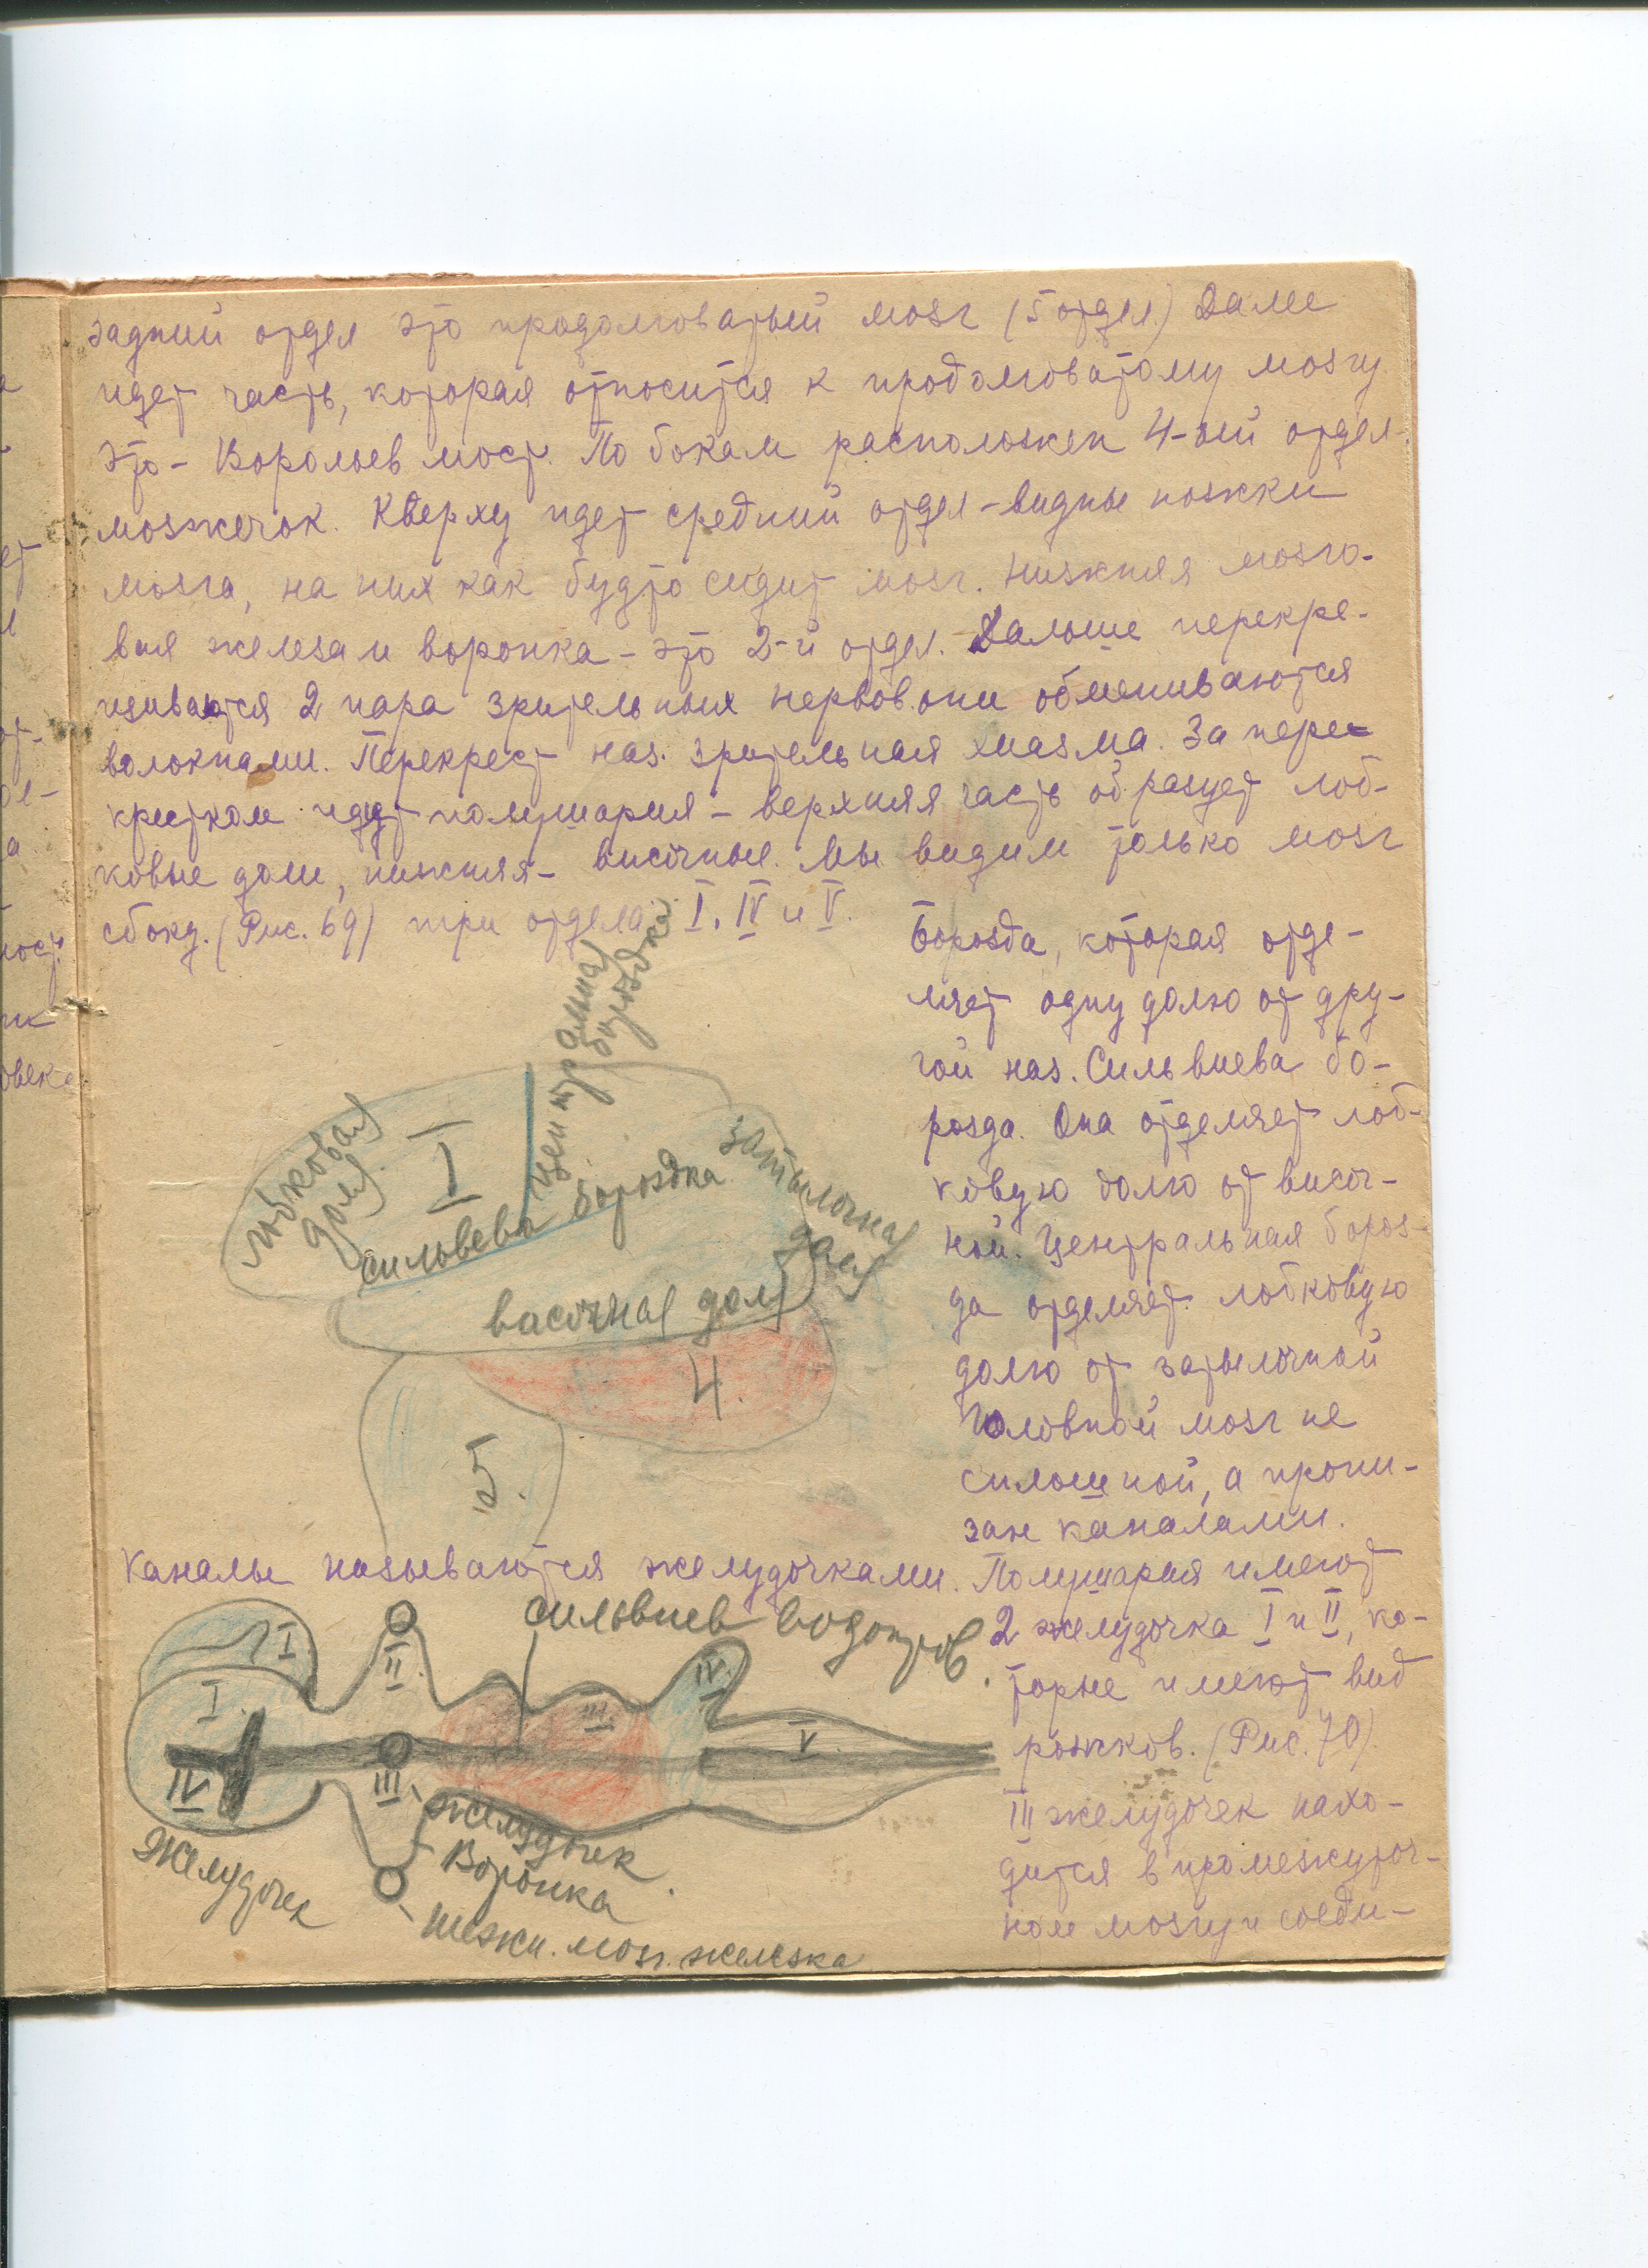 задний отдел это продолговатый мозг (5 отдел.) Далее
идет часть, которая относится к продолговатому мозгу.
это - Варольев мост. По бокам расположен 4-ый отдел-
мозжечок. Кверху идет средний отдел - видны ножки
мозга, на них как будто сидит мозг. Нижняя мозго-
вая железа и воронка - это 2-й отдел. Дальше перекре-
щиваются 2 пара зрительных нервов. они обмениваются
волокнами. Перекрест наз. зрительная хиазма. За пере-
крестком идут полушария - верхняя часть образует лоб-
ковые доли, нижняя - височные. Мы видим только мозг
сбоку. (Рис. 69) три отдела I, IV и V.
Борозда, которая отде-
ляет одну долю от дру-
гой наз. Сильвиева бо-
розда. Она отделяет лоб-
ковую долю от височ-
ной. Центральная бороз-
да отделяет лобковую
долю от затылочной
Головной мозг не
сплошной, а прони-
зан каналами.
центральная
бороздка
лобковая
доля
I
сильвева бороздка
затылочная
доля
височная доля
4.
5.
Каналы называются желудочками. Полушария имеют
2 желудочка I и II, ко-
торые имеют вид
рожков. (Рис. 70).
III желудочек нахо-
дится в промежуточ-
ном мозгу и соеди-
сильвиев водопров.
I
II
I
III
IV
V
IV
III
желудочек
Воронка
Желудочек
Нижн. мозг. железка